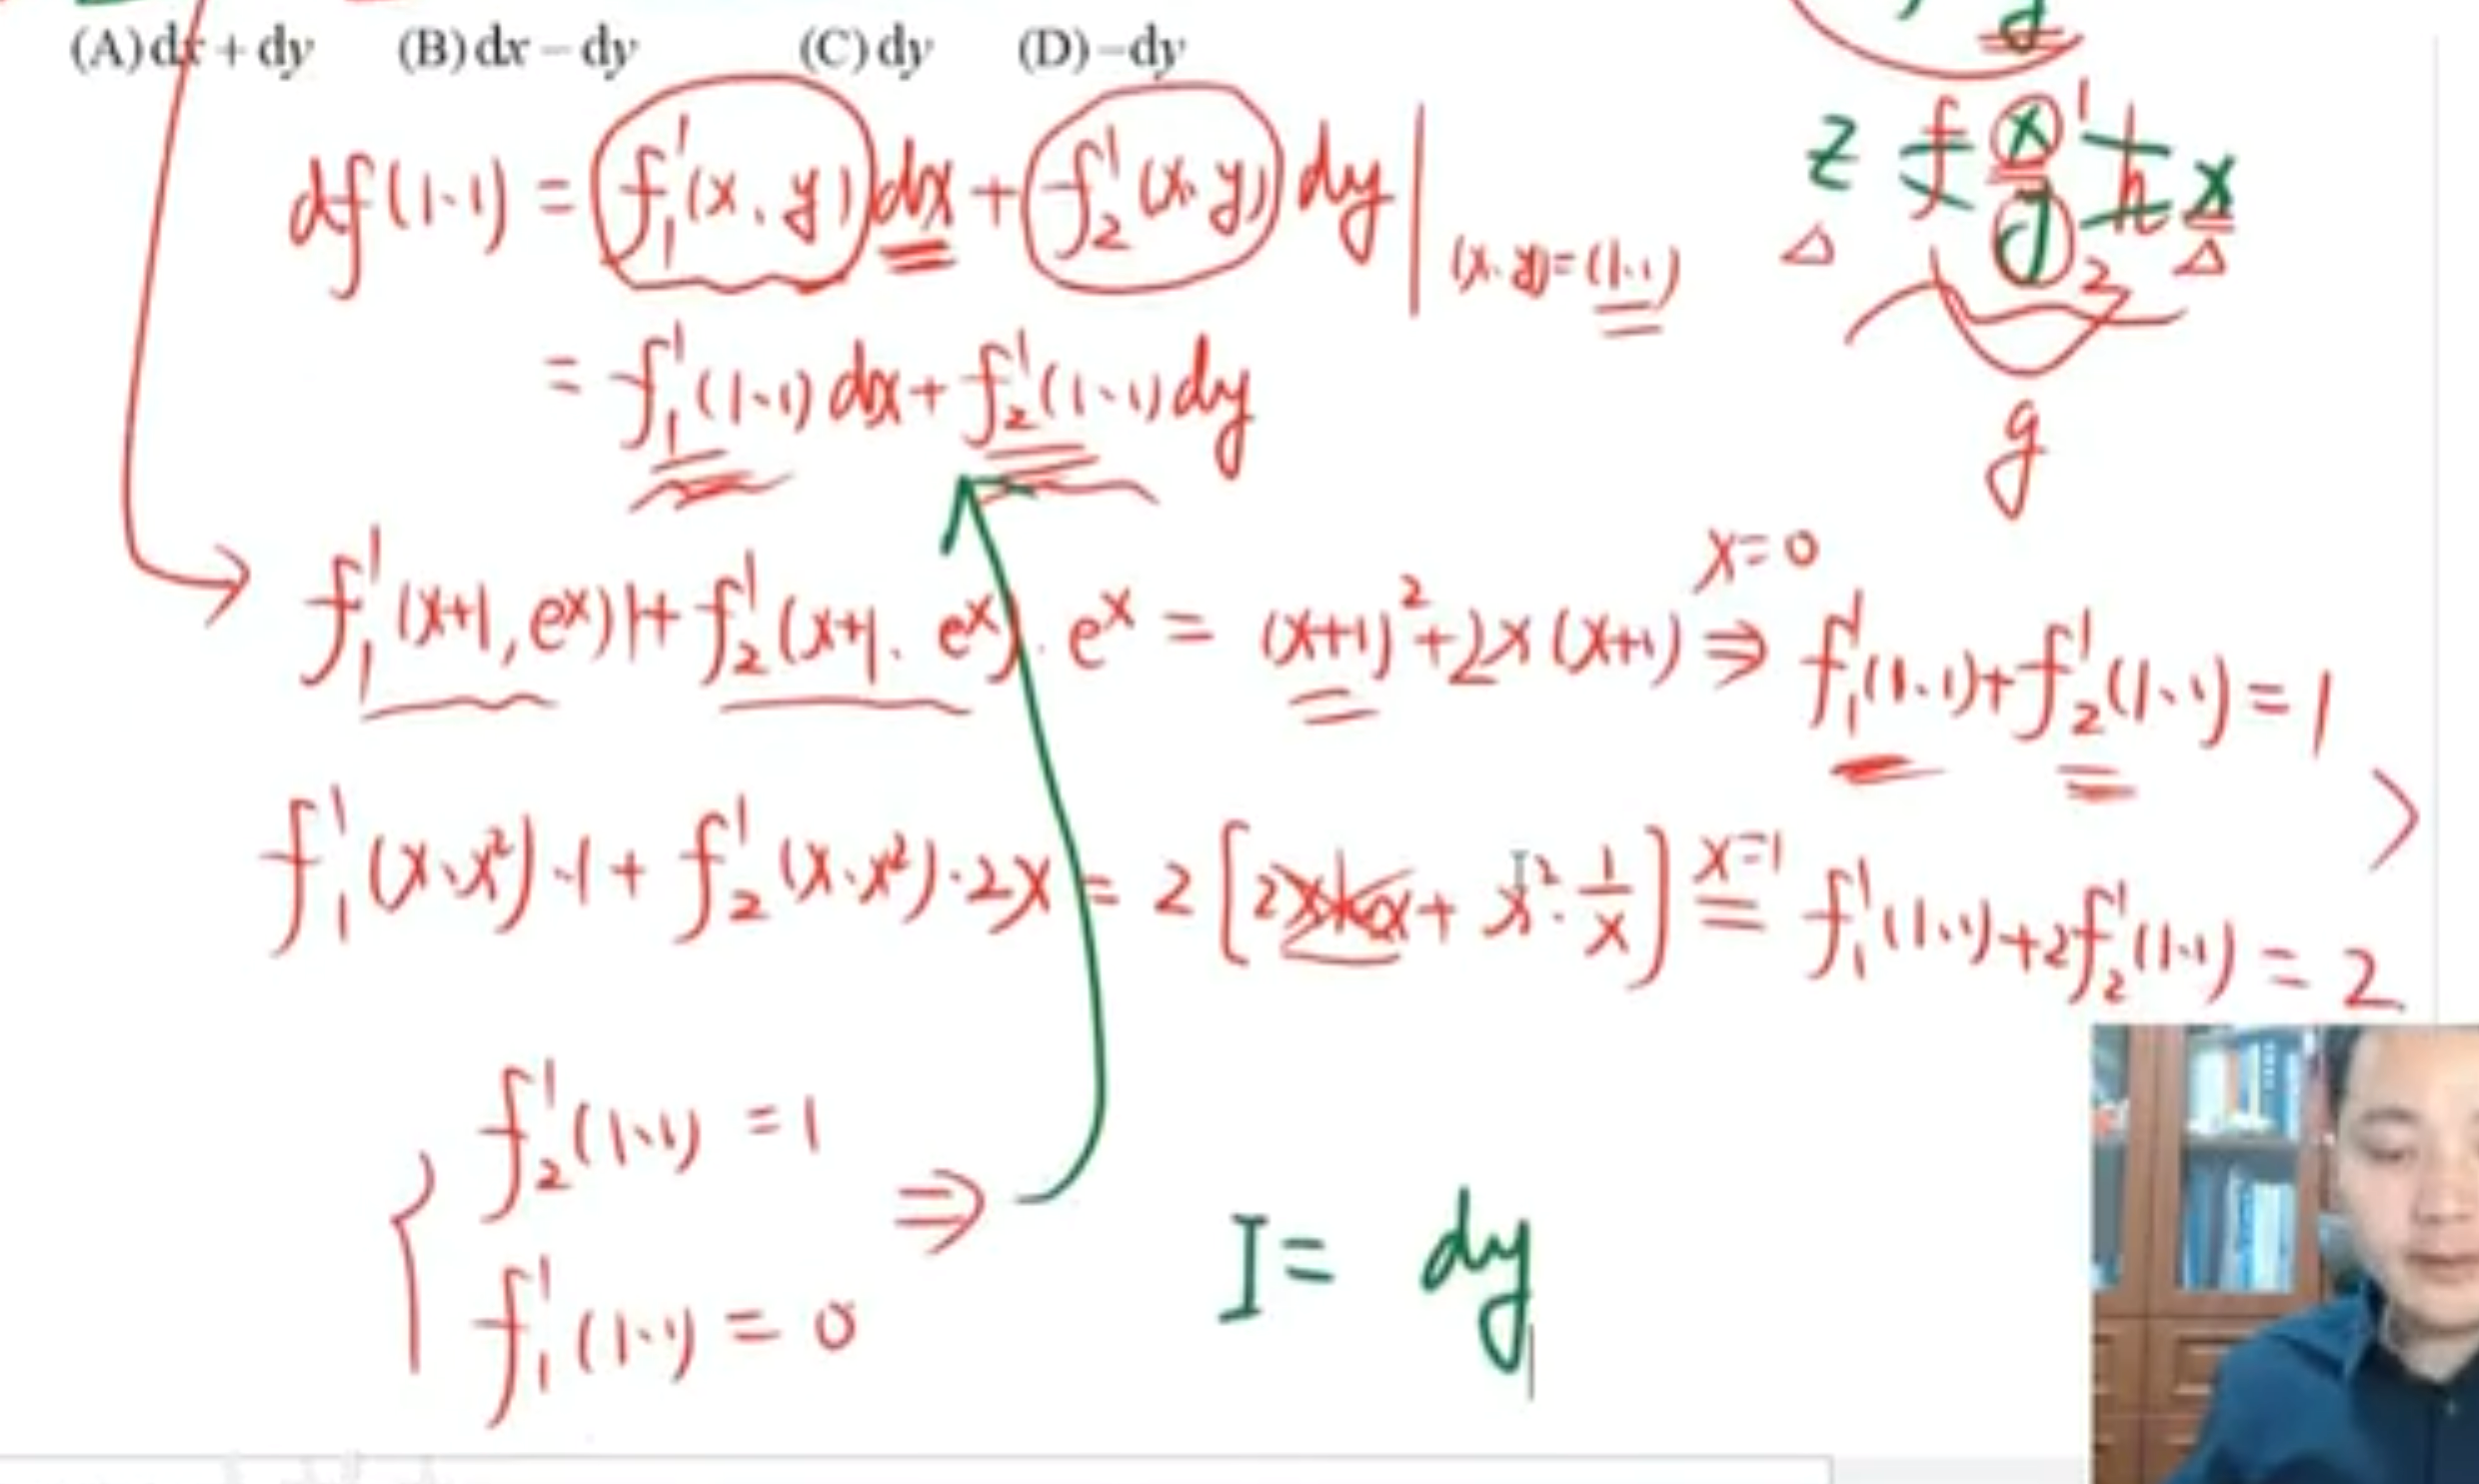 (A) dx + dy (B) dx − dy (C) dy (D) −dy
df(1,1) = f₁'(x,y)dx + f₂'(x,y)dy | (x,y)=(1,1)
= f₁'(1,1)dx + f₂'(1,1)dy
z f x 1 h x
y 2
g
f₁'(x+1, eˣ)·1 + f₂'(x+1, eˣ)·eˣ = (x+1)² + 2x(x+1) x=0 ⇒ f₁'(1,1) + f₂'(1,1) = 1
f₁'(x,x²)·1 + f₂'(x,x²)·2x = 2[2xlnx + x²·1/x] x=1 = f₁'(1,1) + 2f₂'(1,1) = 2
f₂'(1,1) = 1
⇒
f₁'(1,1) = 0
I = dy